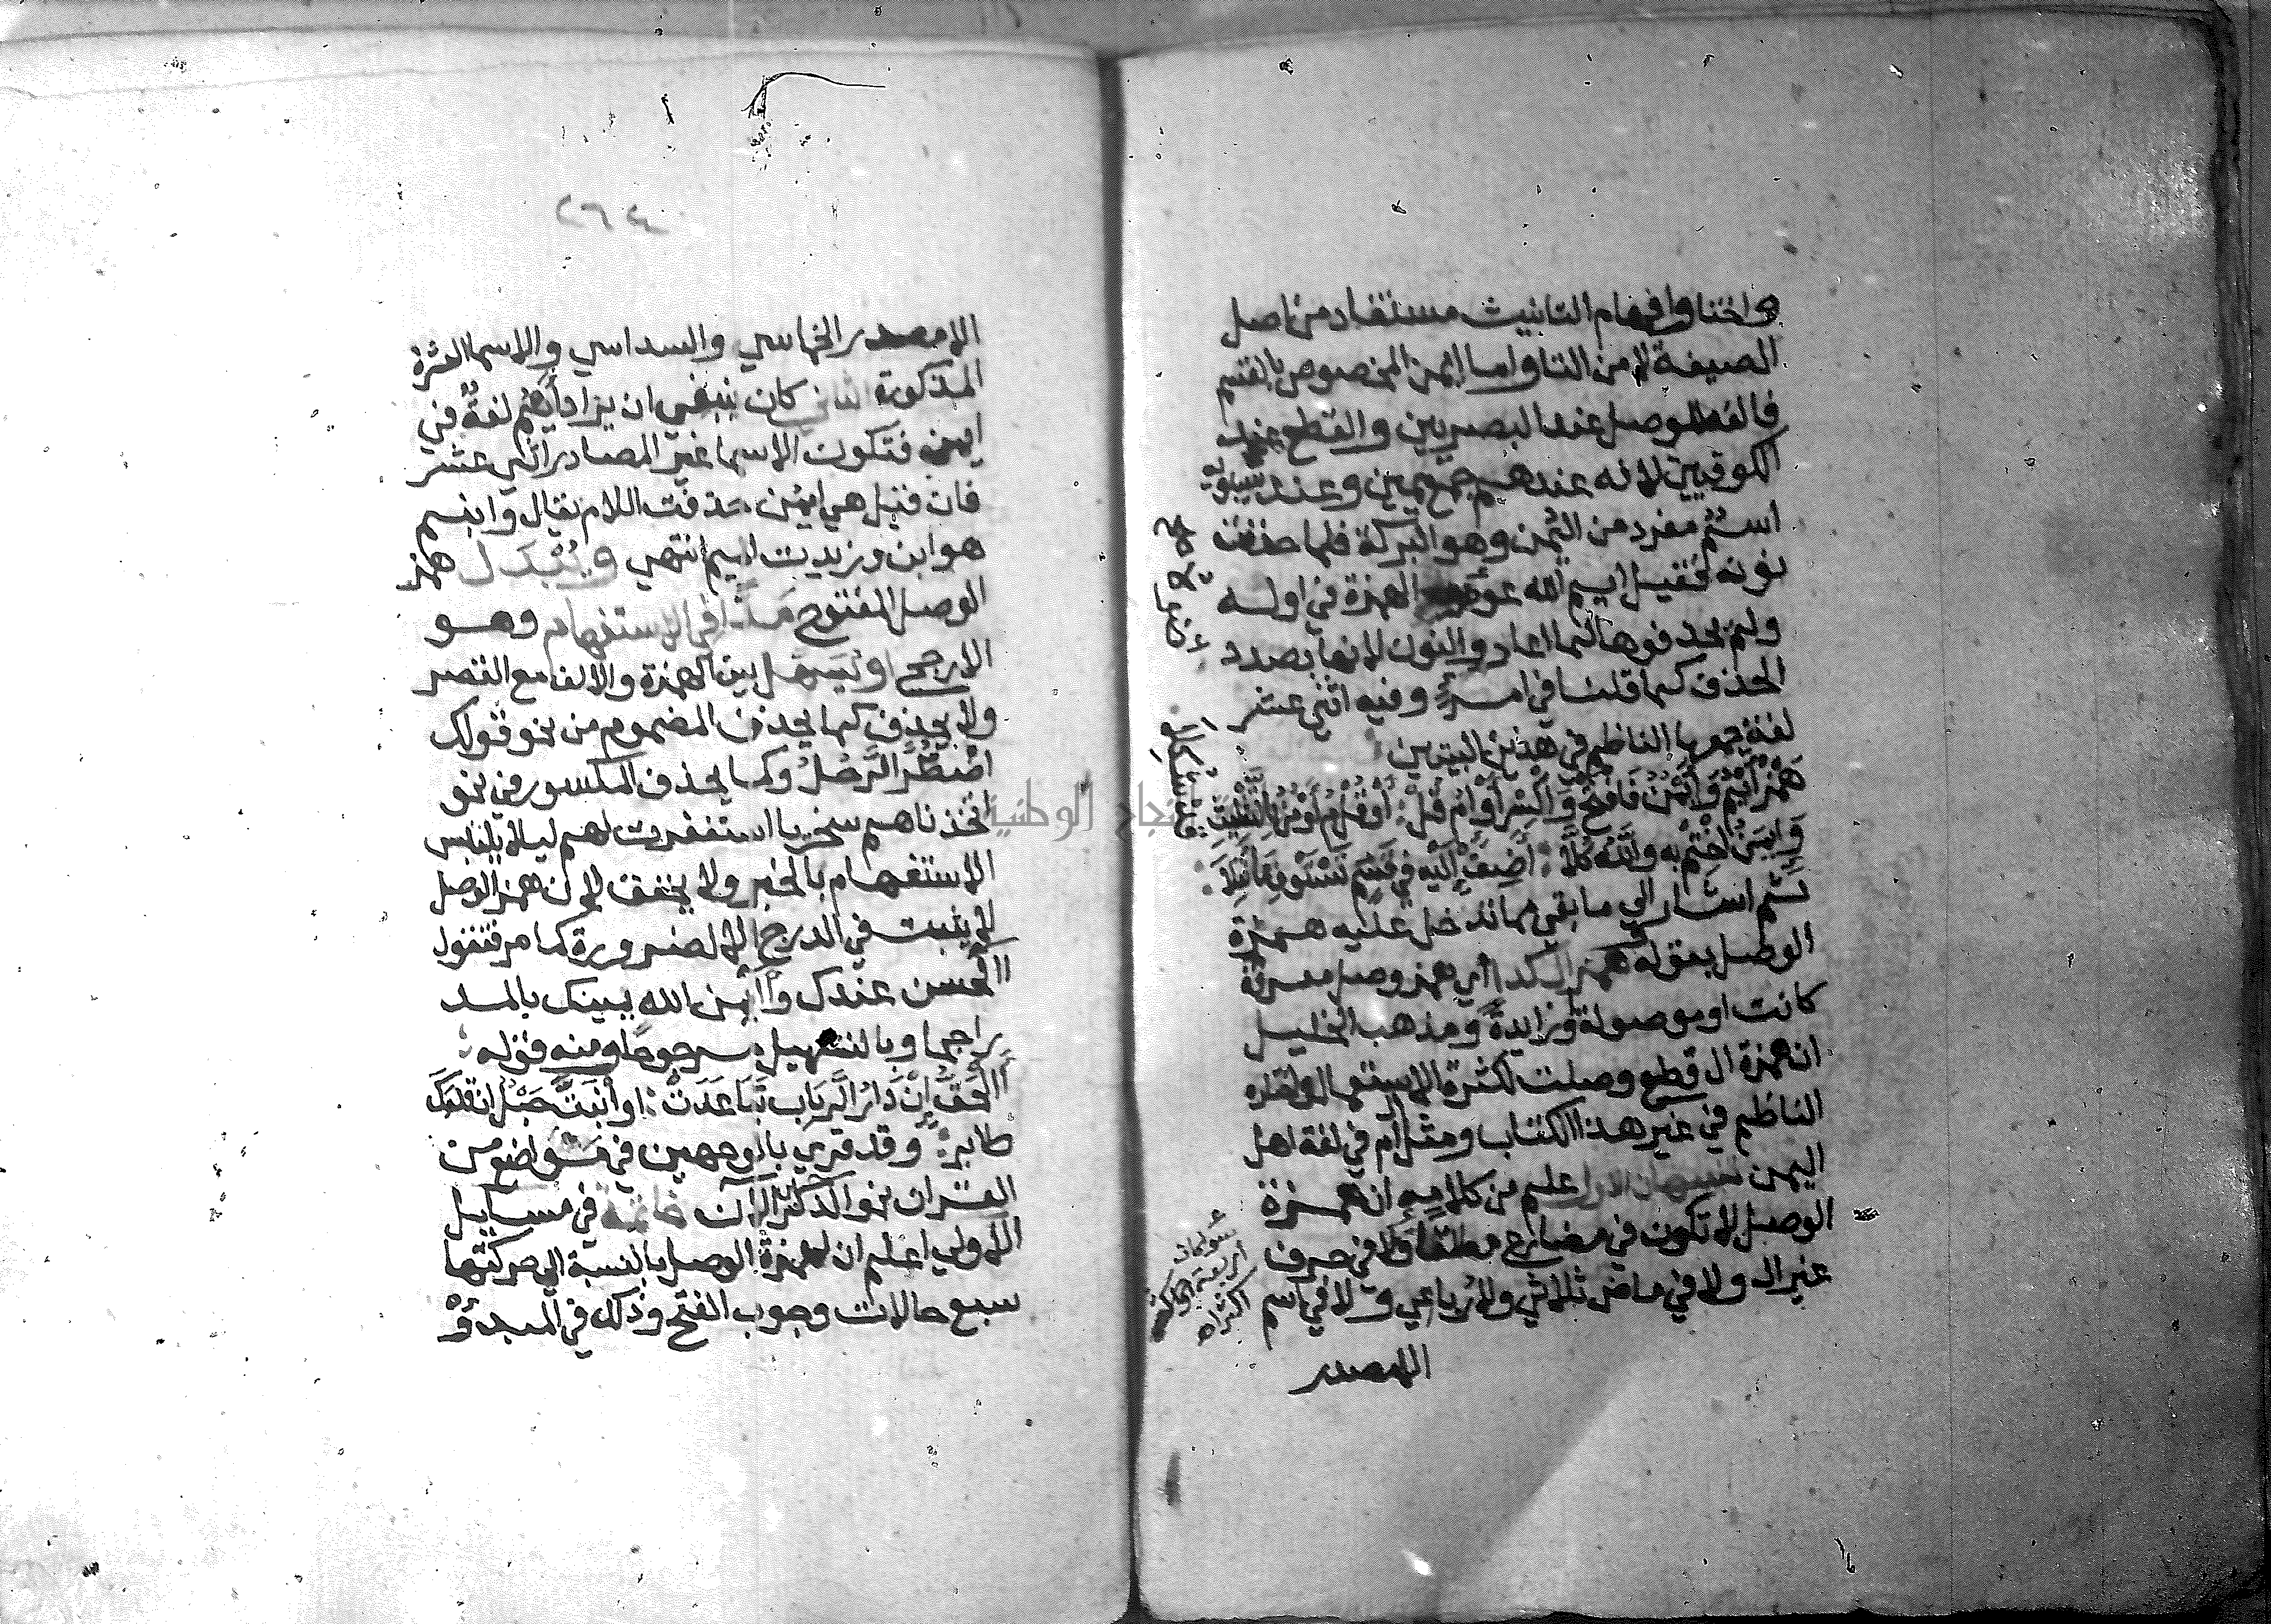 واختا وافهام التانيث مستفاد من اصل
الصيغة لا من التا واما ايمن المخصوص بالقسم
فالفه للوصل عند البصريين والقطع عند
الكوفيين لانه عندهم جمع يمين وعند سيبويه
اسم مفرد من اليمن وهو البركة فلما حذفت
نونه فقيل ايم الله عوض الهمزة في اوله
ولم يحذفوها لما اعادوا النون لانها بصدد
الحذف كما قلنا في امرئ وفيه اثنى عشر
لغة جمعها الناظم في هذين البيتين
هَمْزَ ايْمُ وَايْمُنُ فَافْتَحْ وَاكْسِرْ اَوْ امُ قُلْ : أَوْ قُلْ مُ اَوْ مُنُ بِالتَّثْلِيثِ
وَايْمَنُ اخْتِمْ بِهِ وَاللهِ كُلًّا : أَضِفْ إِلَيْهِ فِي قَسَمٍ تَسْتَوْفِ مَا نُقِلَا
ثم اشار الى ما بقي مما تدخل عليه همزة
الوصل بقوله همز ال كذا اي همز وصل معرفة
كانت او موصولة او زايدة ومذهب الخليل
ان همزة ال قطع وصلت لكثرة الاستعمال واختاره
الناظم في غير هذا الكتاب ومثل ال ام في لغة اهل
اليمن تنبيهان الاول علم من كلامه ان همزة
الوصل لا تكون في مضارع مطلقا ولا في حرف
غير ال ولا في ماض ثلاثي ولا رباعي ولا في اسم
الا مصدر
٢٦٤
الا مصدر الخماسي والسداسي والاسما العشرة
المذكورة الثاني كان ينبغي ان يزاد أيم لغة في
ايمن فتكون الاسما غير المصادر اثني عشر
فان قيل هي ايمن حذفت اللام يقال وابنم
هو ابن وزيدت الميم انتهى ويُبْدَل همز
الوصل المفتوح مدا في الاستفهام وهو
الارجح او يُسَهَّل بين الهمزة والالف مع القصر
ولا يحذف كما يحذف المضموم من نحو قولك
اضْطُرَّ الرَّجُلُ وكما يحذف المكسور في نحو
اتخذناهم سخريا استغفرت لهم ليلا يلتبس
الاستفهام بالخبر ولا يحقق لان همز الوصل
لا يثبت في الدرج الا لضرورة كما مر فتقول
االحسن عندك وآايمن الله يمينك بالمد
راجحا وبالتسهيل مرجوحا ومنه قوله
أَالحَقُّ إِنْ دَارُ الرَّبَابِ تَبَاعَدَتْ : اَوِ انْبَتَّ حَبْلٌ ان قَلْبَكَ
طاير وقد قري بالوجهين في مواضع من
القران نحو الذكرين الان خاتمة في مسايل
الاولى اعلم ان لهمزة الوصل بالنسبة الى حركتها
سبع حالات وجوب الفتح وذلك في المبدؤ
النجاح الوطنية